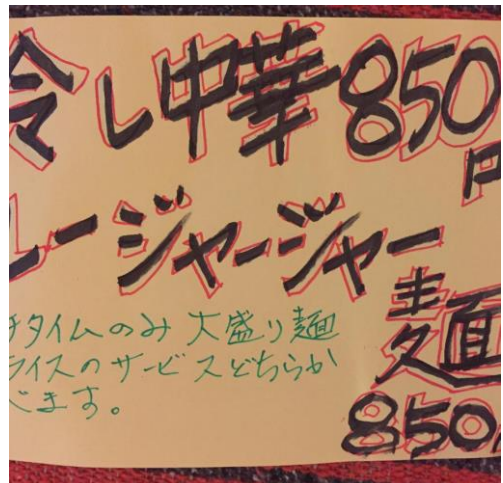 冷し中華 850
円
レージャージャー
麺
850
チタイムのみ 大盛り麺
ライスのサービスどちらか
べます。